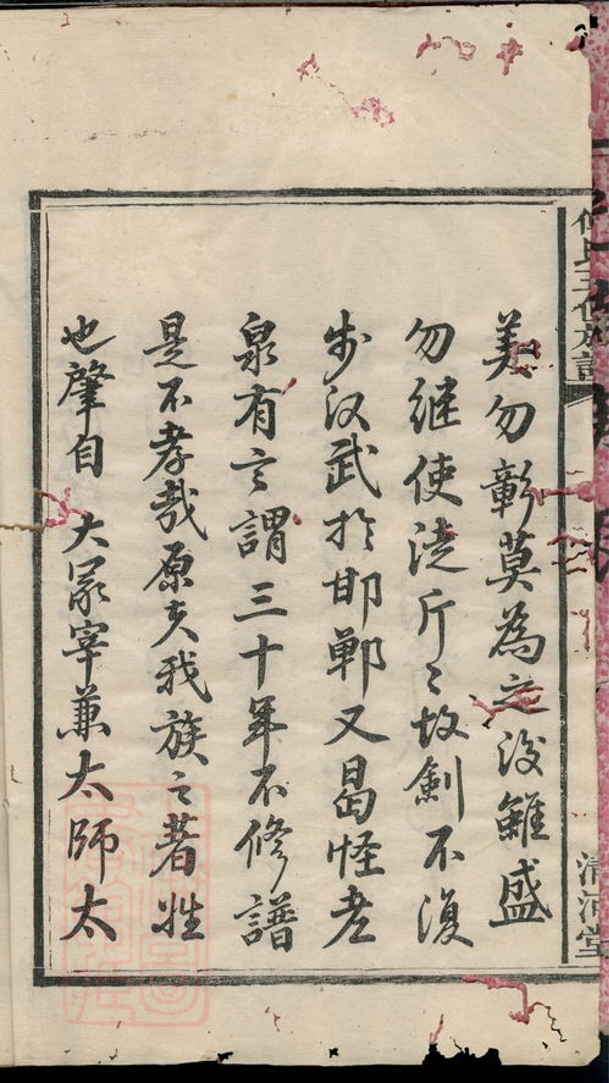 氏三修族譜
清河堂
美勿彰莫為之後雖盛
勿继使徒斤〻故劍不復
步汉武於邯鄲又曷怪老
泉有言謂三十年不修譜
是不孝哉原夫我族之著姓
也肇自 大冢宰兼太師太